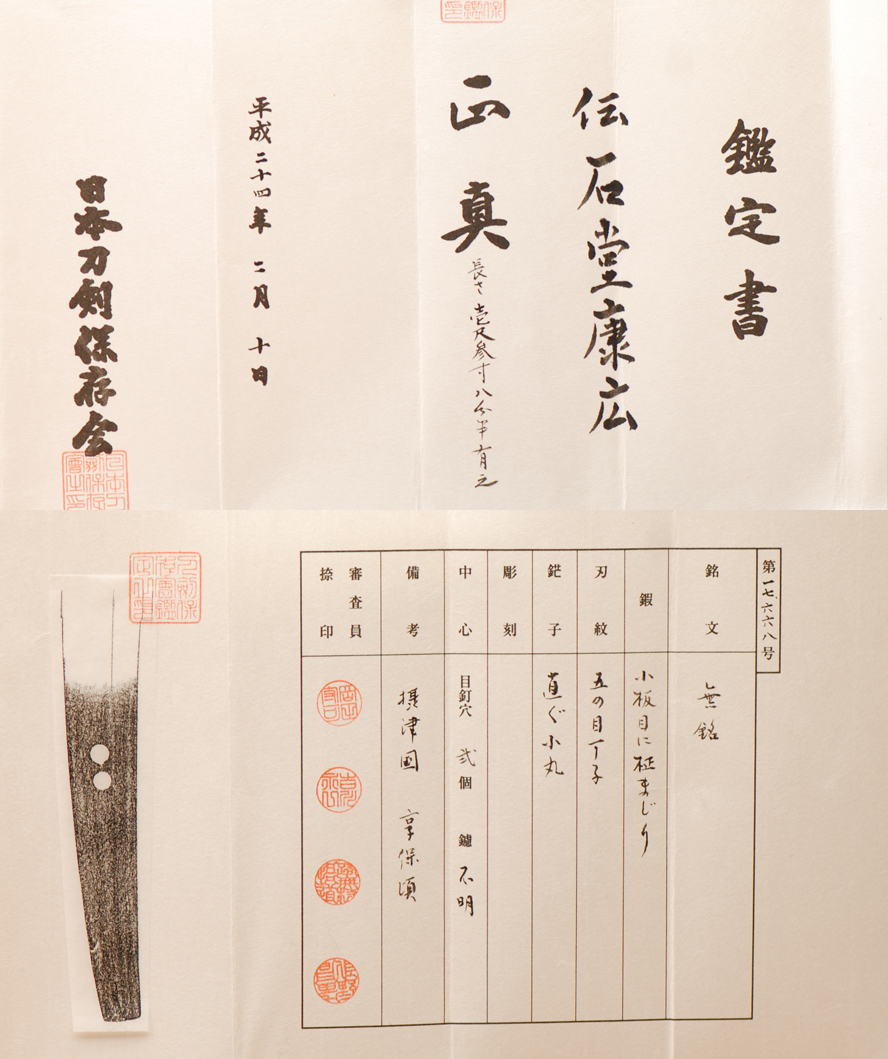 鑑定書
伝石堂康広
正真
長さ壱尺参寸八分半有之
平成二十四年二月十日
日本刀剣保存会
第一七、六六八号
銘文
無銘
鍜
小板目に柾まじり
刃紋
五の目丁子
鋩子
直ぐ小丸
彫刻
中心
目釘穴 弐個 鑢 不明
備考
摂津国 享保頃
審査員
捺印